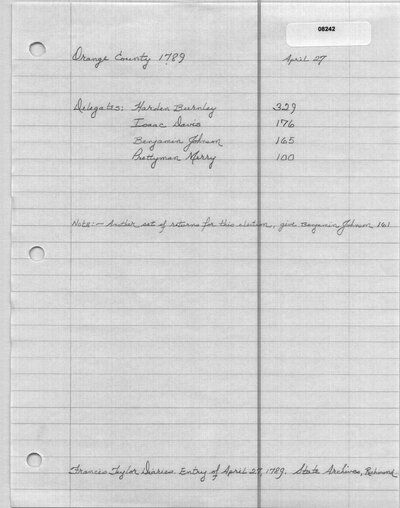 08242
Orange County 1789 April 27
Delegates: Harden Burnley 329
Isaac Davis 176
Benjamin Johnson 165
Prettyman Merry 100
Note:- Another set of returns for this election, give Benjamin Johnson 161
Francis Taylor Diaries. Entry of April 27, 1789. State Archives, Richmond